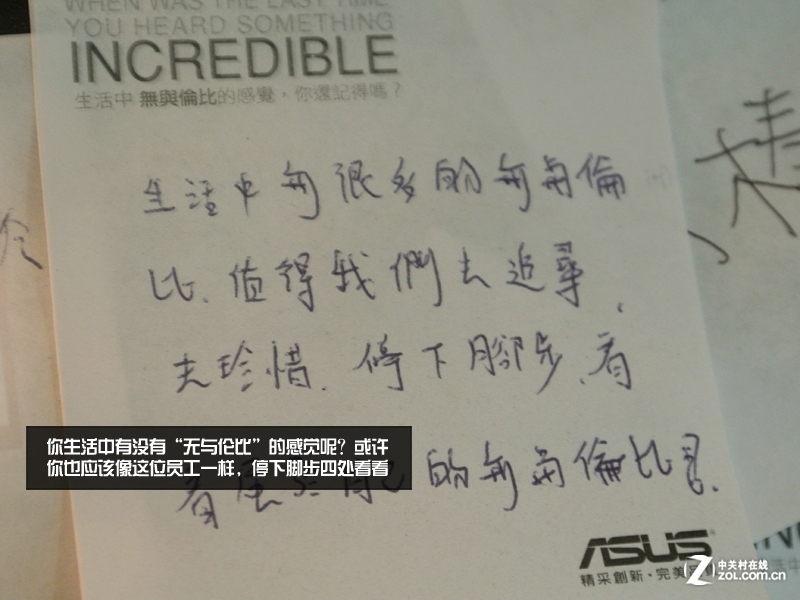 WHEN WAS THE LAST TIME
YOU HEARD SOMETHING
INCREDIBLE
生活中 無與倫比的感覺，你還記得嗎？
生活中有很多的無與倫
比、值得我們去追尋、
去珍惜．停下腳步、看
你生活中有没有“无与伦比”的感觉呢？或许
你也应该像这位员工一样，停下脚步四处看看
看屬於自己的無與倫比
ASUS
精采創新·完美
中关村在线
zol.com.cn